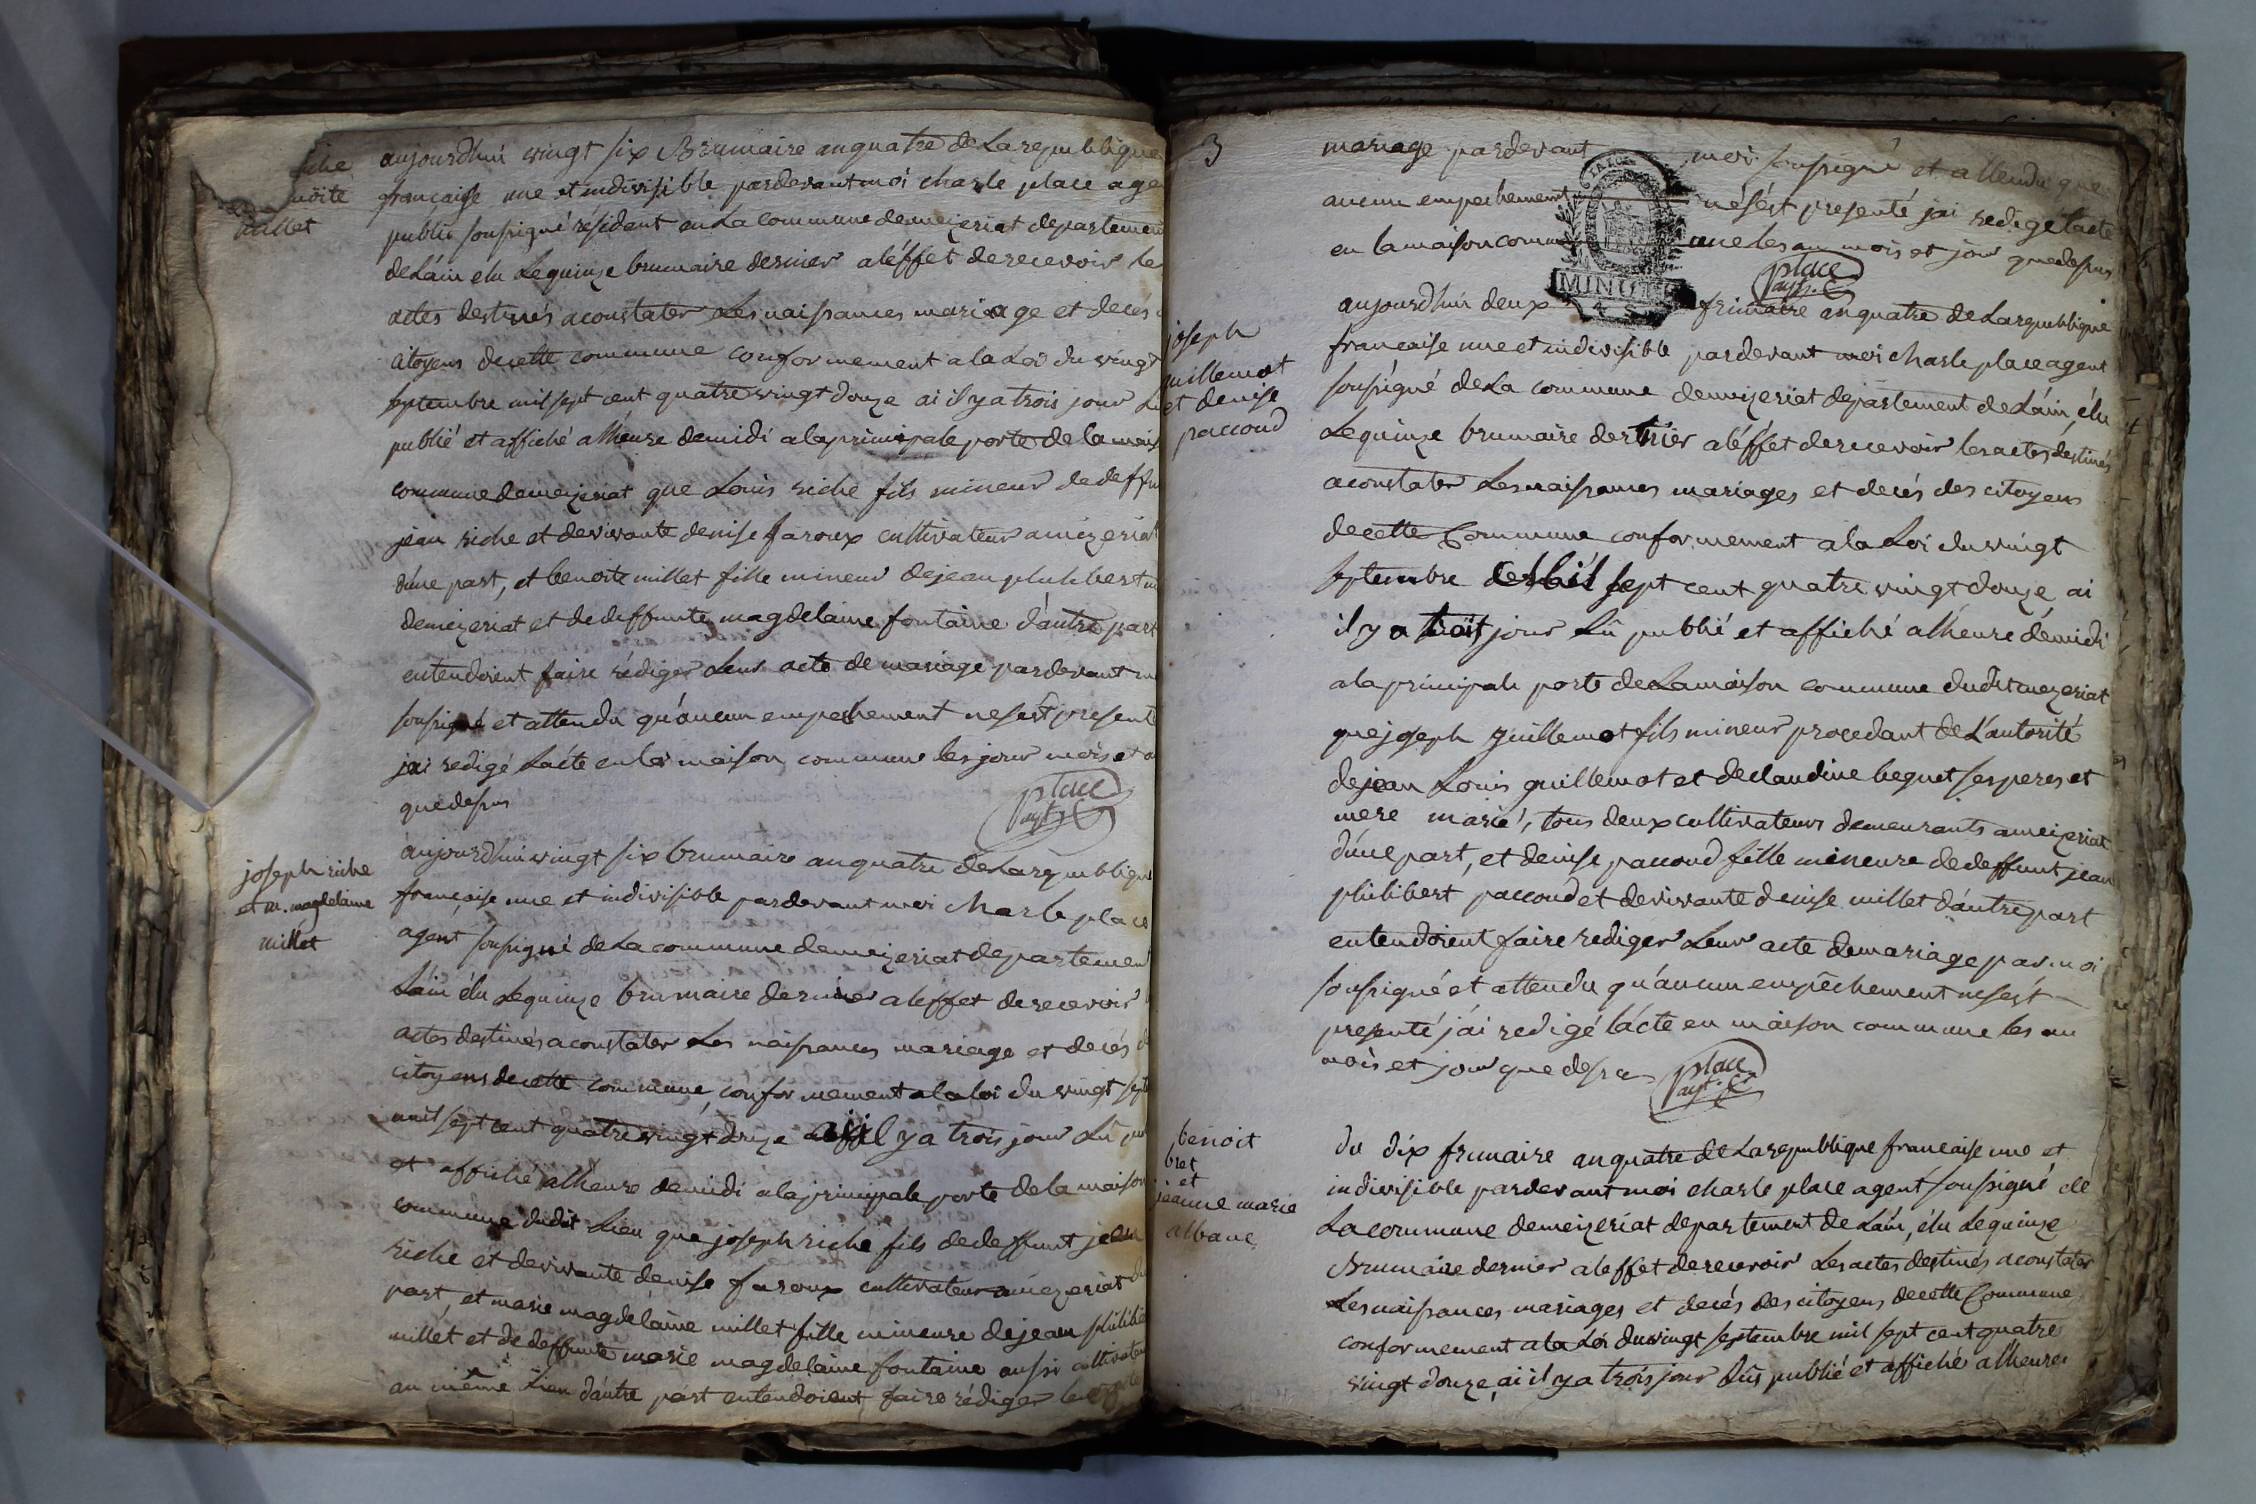 riche
noite
millet
aujourdhui vingt six Brumaire an quatre de La republique
francaise une et indivisible pardevant moi charle place age
public soussigné résidant en La commune demeizeriat departement
de Láin elu Le quinze brumaire dernier a léffet de recevoir le
actes destinés a constater Les naissances mariage et decés
citoyens de cette commune conformement a la Loi du vingt
septembre mil sept cent quatre vingt douze ai il y a trois jour Lu
publié et affiché a lhéure de midi a la principale porte de la mais
commune demeizeriat que Louis riche fils mineur de deffu
jean riche et de vivante denise faroux cultivateur a meizeriat
dúne part, et benoite millet fille mineur de jean philibert m
demeizeriat et de deffunte magdelaine fontaine dáutre part
entendoient faire rédiger Leur acte de mariage pardevant m
soussigné et attendu qu'áucun empechement ne sest présent
jai redigé Lácte en la maison commune les jour mois et a
que dessus
place
agt
joseph riche
et m. magdelaine
millet
aujourdhui vingt six brumaire an quatre de La republique
francaise une et indivisible pardevant moi charle place
agent soussigné de La commune demeizeriat departement
Láin élu Le quinze brumaire dernier a léffet de recevoir
actes destinés a constater Les naissances mariage et decés d
citoyens de cette commune, conformement a la loi du vingt sept
mil sept cent quatre vingt douze ai il y a trois jour Lu pu
et affiché a lhéure de midi a la principale porte de la maison
commune dudit Lieu que joseph riche fils de deffunt jean
riche et de vivante denise faroux cultivateur a meizeriat du
part, et marie magdelaine millet fille mineure de jean philibe
millet et de deffunte marie magdelaine fontaine aussi cultivateu
au même Lieu dáutre part entendoient faire rédiger leur acte
3
mariage pardevant moi soussigné et attendu que
aucun empechement ne sést presenté jai redigé lacte
en la maison commune les an mois et jour que dessus
MINUTE
place
agt
joseph
guillemot
et denise
paccoud
aujourdhui deux frimaire an quatre de La republique
francaise une et indivisible pardevant moi charle place agent
soussigné de La commune demeizeriat département de Láin, élu
Le quinze brumaire dernier a léffet de recevoir les actes destinés
a constater Les naissances mariages et decés des citoyens
de cette Commune conformement a la Loi du vingt
septembre mil sept cent quatre vingt douze ai
il y a trois jour Lû publié et affiché a lhéure démidi
a la principale porte de La maison commune dudit mezeriat
que joseph guillemot fils mineur procedant de Láutorité
de jean Louis guillemot et de claudine beguet ses peres et
mere marié, tous deux cultivateurs demeurants a meizeriat
dúne part, et denise paccoud fille mineure de deffunt jean
philibert paccoud et de vivante denise millet dáutre part
entendoient faire rediger Leur acte de mariage par moi
soussigné et attendu qu'áucun empêchement ne sest
presenté j'ai redigé lácte en maison commune les an
mois et jour que dessus
place
agt
benoit
bret
et
jeanne marie
albane
du dix frimaire an quatre de La republique francaise une et
indivisible pardevant moi charle place agent soussigné de
La commune demeizeriat departement de Láin, élu Le quinze
Brumaire dernier a léffet de recevoir Les actes destinés a constater
Les naissances mariages et decés des citoyens de cette Commune
conformement a la Loi du vingt septembre mil sept cent quatre
vingt douze, ai il y a trois jour Lûs publié et affiché a lheure